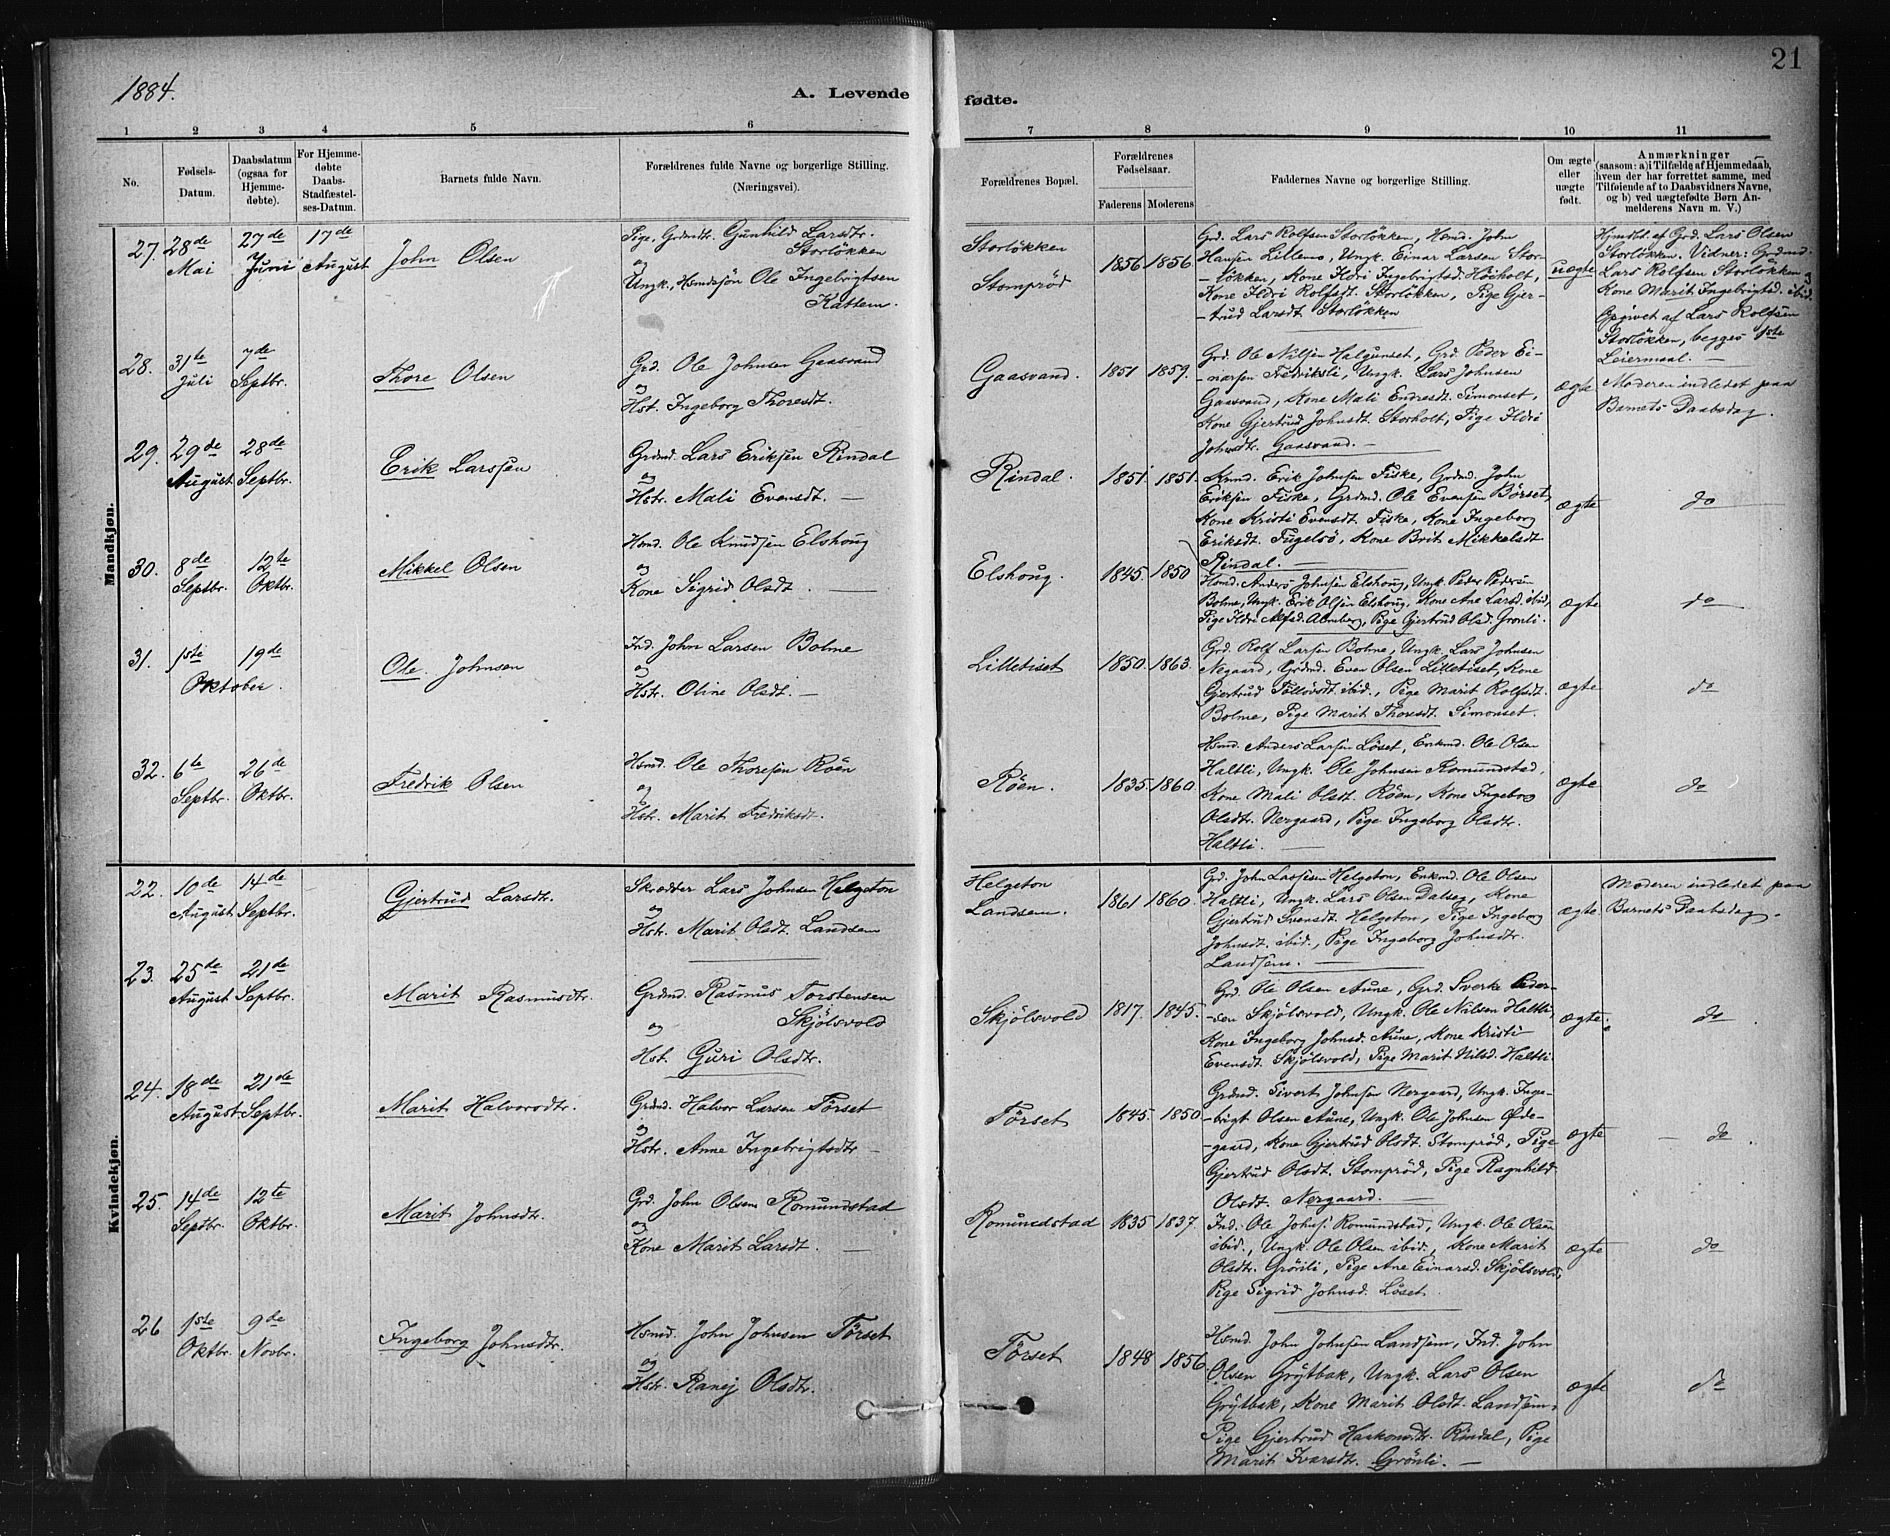 1884.
A. Levende fødte.
21
1 2 3 4 5 6 7 8 9 10 11
No.
Fødsels-
Datum.
Daabsdatum
(ogsaa for
Hjemme-
døbte).
For Hjemme-
døbte
Daabs-
Stadfæstel-
ses-Datum.
Barnets fulde Navn.
Forældrenes fulde Navne og borgerlige Stilling.
(Næringsvei).
Forældrenes Bopæl.
Forældrenes
Fødselsaar.
Faderens Moderens
Faddernes Navne og borgerlige Stilling.
Om ægte
eller
uægte
født.
Anmærkninger
(saasom: a) i Tilfælde af Hjemmedaab,
hvem der har forrettet samme, med
Tilføiende af to Daabsvidners Navne,
og b) ved uægtefødte Børn An-
melderens Navn m. V.)
Mandkjøn.
27. 28de Mai
27de Juni
17de August
John Olsen
Pige, Grdmdtr. Gunhild Larsdtr.
Storløkken
og
Ungk., Hsmdssøn Ole Ingebrigtsen
Kattem.
Storløkken
Stomprød
1856 1856
Grd. Lars Rolfsen Storløkken, Hsmd. John
Hansen Lillemo, Ungk. Einar Larsen Stor-
-løkken, Kone Ildri Ingebrigtsd. Høiholt,
Kone Ildri Rolfsdt. Storløkken, Pige Gjer-
-trud Larsdt. Storløkken
uægte
Hjmdbt. af Grd. Lars Olsen
Storløkken. Vidner: Grdmd.
Lars Rolfsen Storløkken og
Kone Marit Ingebrigtsd. ibid.
Opgivet af Lars Rolfsen
Storløkken, begges 1ste
Leiermaal. —
28. 31te Juli
7de Septbr.
Thore Olsen
Grd. Ole Johnsen Gaasvand
og
Hst. Ingeborg Thoresdt.
Gaasvand.
1851 1859.
Grd. Ole Nilsen Halgunset, Grd. Peder Ei-
-narsen Fredriksli, Ungk. Lars Johnsen
Gaasvand, Kone Mali Endresdt. Simonset,
Kone Gjertrud Johnsdt. Storholt, Pige Ildri
Johnsdtr. Gaasvand. —
ægte
Moderen indledet paa
Barnets Daabsdag.
29. 29de August
28de Septbr.
Erik Larssen
Grdmd. Lars Eriksen Rindal
og
Hstr. Mali Evensdt. —
Rindal.
1851. 1851.
Knmd. Erik Johnsen Fiske, Grdmd. John
Eriksen Fiske, Grdmd. Ole Evensen Børset,
Kone Kristi Evensdt. Fiske, Kone Ingeborg
Eriksdt. Fugelsø, Kone Brit Mikkelsdt.
Rindal. —
ægte
do
30. 8de Septbr.
12te Oktbr.
Mikkel Olsen
Hsmd. Ole Knudsen Elshoug
og
Kone Sigrid Olsdt. —
Elshoug.
1845. 1850
Hsmd. Anders Johnsen Elshoug, Ungk. Peder Pedersen
Bolme, Ungk. Erik Olsen Elshoug, Kone Ane Larsd. ibid,
Pige Ildri Alfsd. Almberg, Pige Gjertrud Olsd. Grønli.
ægte
do
31. 1ste Oktober.
19de
Ole Johnsen
Ind. John Larsen Bolme
og
Hstr. Oline Olsdt. —
Lilletiset
1850. 1863.
Grd. Rolf Larsen Bolme, Ungk. Lars Johnsen
Negaard, Grdmd. Even Olsen Lilletiset, Kone
Gjertrud Tølløvsdt. ibid., Pige Marit Rolfsdt.
Bolme, Pige Marit Thoresdt. Simonset.
ægte
do
32. 6te Septbr.
26de Oktbr.
Fredrik Olsen
Hsmd. Ole Thoresen Røen
og
Hstr. Marit Fredriksdt.
Røen.
1835. 1860
Hsmd. Anders Larsen Løset, Enkmd. Ole Olsen
Haltli, Ungk. Ole Johnsen Romundstad,
Kone Mali Olsdt. Røen, Kone Ingeborg
Olsdtr. Nergaard, Pige Ingeborg Olsdtr.
Haltli. —
ægte
do
Kvindekjøn.
22. 10de August
14de Septbr.
Gjertrud Larsdt.
Skrædder Lars Johnsen Helgeton
og
Hstr. Marit Olsdt. Landsem
Helgeton
Landsem.
1861 1860.
Grd. John Larssen Helgeton, Enkmd. Ole Olsen
Haltli, Ungk. Lars Olsen Dalseg, Kone
Gjertrud Svensdt. Helgeton, Pige Ingeborg
Johnsdt. ibid., Pige Ingeborg Johnsdtr.
Landsem. —
ægte.
Moderen indledet paa
Barnets Daabsdag.
23. 25de August
21de Septbr.
Marit Rasmusdtr.
Grdmd. Rasmus Torstensen
Skjølsvold
og
Hst. Guri Olsdtr.
Skjølsvold
1817. 1845.
Grd. Ole Olsen Aune, Grd. Sverke Peder-
-sen Skjølsvold, Ungk. Ole Nilsen Haltli,
Kone Ingeborg Johnsd. Aune, Kone Kristi
Evensdt. Skjølsvold, Pige Marit Nilsd. Haltli.
ægte.
do
24. 18de August
21de Septbr.
Marit Halvorsdtr.
Grdmd. Halvor Larsen Tørset
og
Hstr. Anne Ingebrigtsdtr —
Tørset
1845. 1850
Grdmd. Sivert Johnsen Nergaard, Ungk. Inge-
-brigt Olsen Aune, Ungk. Ole Johnsen Øde-
-gaard, Kone Gjertrud Olsdt. Stomprød, Pige
Gjertrud Olsdt. Stomprød, Pige Ragnhild
Olsdt. Nergaard. —
ægte
— do.
25. 14de Septbr.
12te Oktbr.
Marit Johnsdtr.
Grd. John Olsen Romundstad
og
Kone Marit Larsdt. —
Romundstad
1835 1837.
Ind. Ole Johns. Romundstad, Ungk. Ole Olsen
ibid., Ungk. Ole Olsen ibid., Kone Marit
Olsdtr. Grønli, Pige Ane Einarsd. Skjølsvold,
Pige Sigrid Johnsd. Løset.
ægte
do
26 1ste Oktbr.
9de Novbr.
Ingeborg Johnsdtr.
Hsmd. John Johnsen Tørset
og
Hstr. Ranej Olsdtr.
Tørset
1848 1856.
Hsmd. John Johnsen Landsem, Ind. John
Olsen Grytbak, Ungk. Lars Olsen
Grytbak, Kone Marit Olsdt. Landsem,
Pige Gjertrud Haakonsdtr. Rindal, Pige
Marit Ivarsdtr. Grønli. —
ægte
do